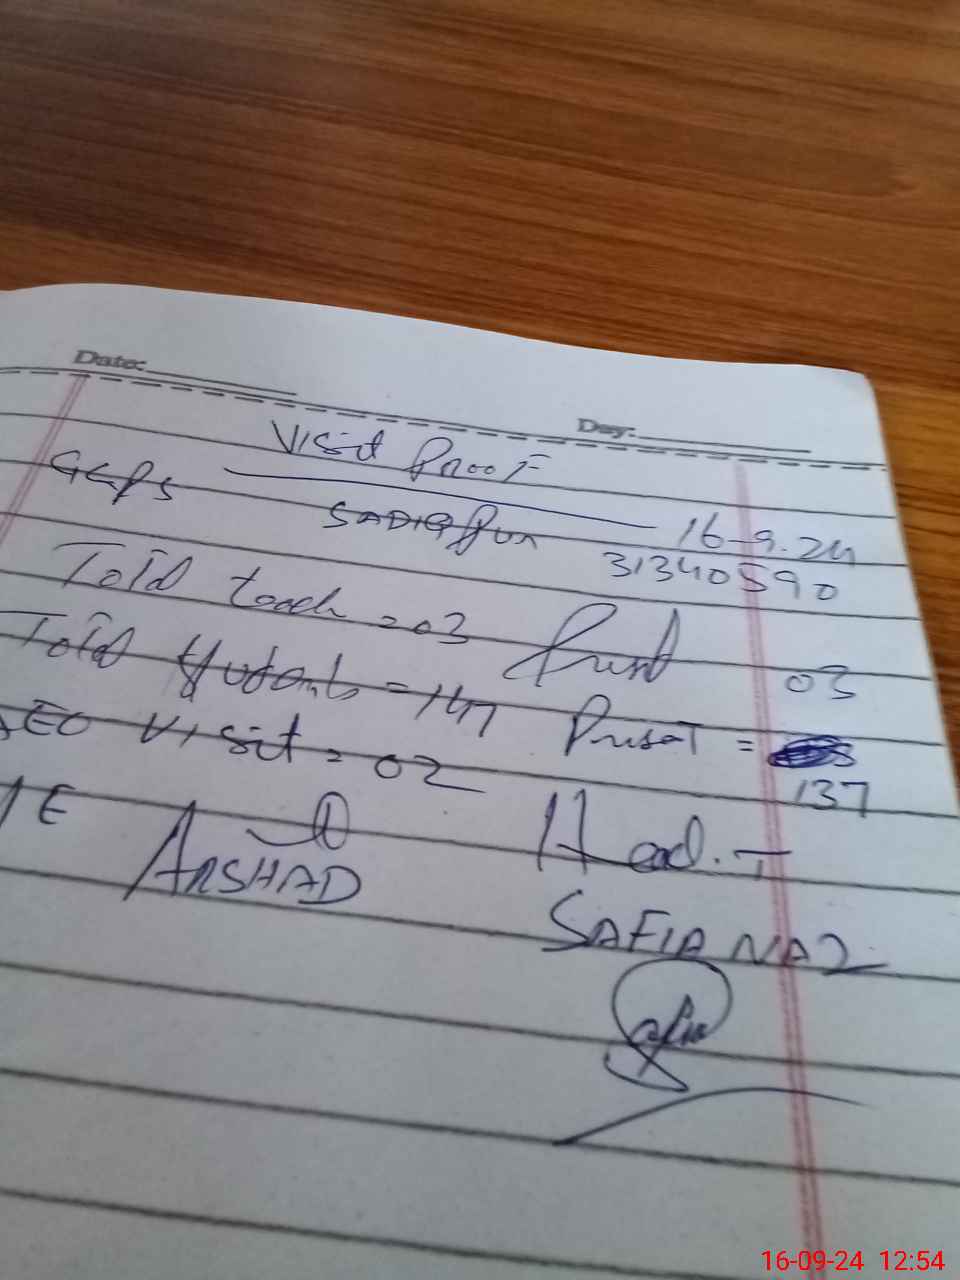 Date:
Day:
Visit Proof
GGPS SADIQ Pur 16-9.24
31340590
Total teach = 03 Prest 03
Total Students = 147 Presat =
137
AEO Visit = 02
Head. T
ARSHAD
SAFIA NAZ
Safia
16-09-24 12:54